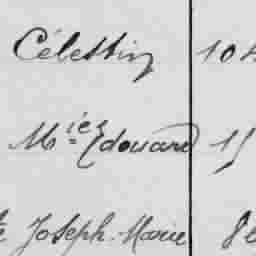 Célestin 104
M.ie Édouard 15
Joseph-Marie 86